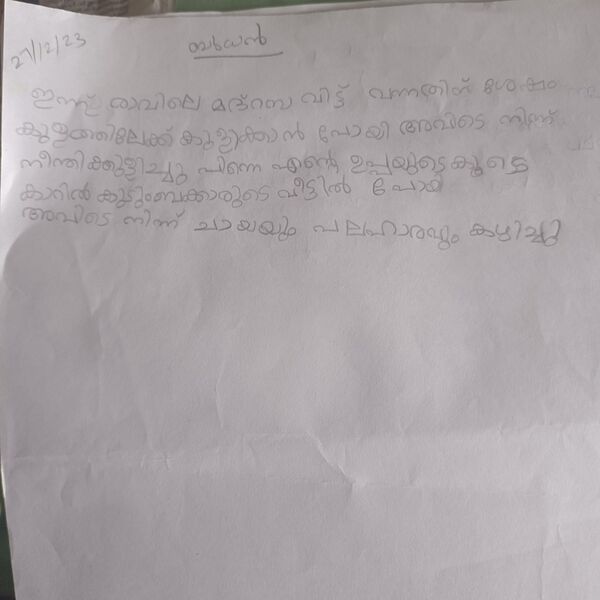 27/12/23
ബുധൻ
ഇന്ന് രാവിലെ മദ്റസ വിട്ട് വന്നതിന് ശേഷം
കുളത്തിലേക്ക് കുളിക്കാൻ പോയി അവിടെ നിന്ന്
നീന്തിക്കുളിച്ചു പിന്നെ എന്റെ ഉപ്പയുടെ കൂടെ
കാറിൽ കുടുംബക്കാരുടെ വീട്ടിൽ പോയി
അവിടെ നിന്ന് ചായയും പലഹാരവും കഴിച്ചു